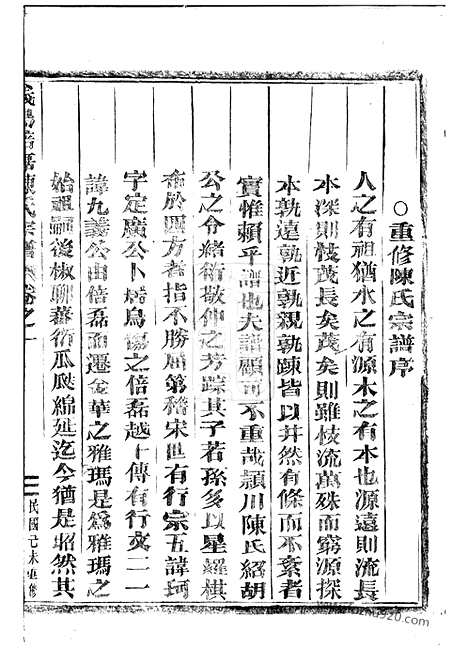 ○重修陳氏宗譜序
人之有祖猶水之有源木之有本也源遠則流長
本深則枝茂長矣茂矣則雖枝流萬殊而窮源探
本孰遠孰近孰親孰疎皆以井然有條而不紊者
實惟賴乎譜也夫譜顧可不重哉潁川陳氏紹胡
公之令緒衍敬仲之芳踪其子若孫多以星羅棋
布於四方者指不勝屈第稽宋世有行宗五諱珂
字定廣公卜塔烏傷之倍磊越十傳有行文二一
諱九義公由倍磊而遷金華之雅瑪是爲雅瑪之
始祖嗣後椒聊蕃衍瓜瓞綿延迄今猶是昭然其
陳氏宗譜 卷之一
民國己未重修